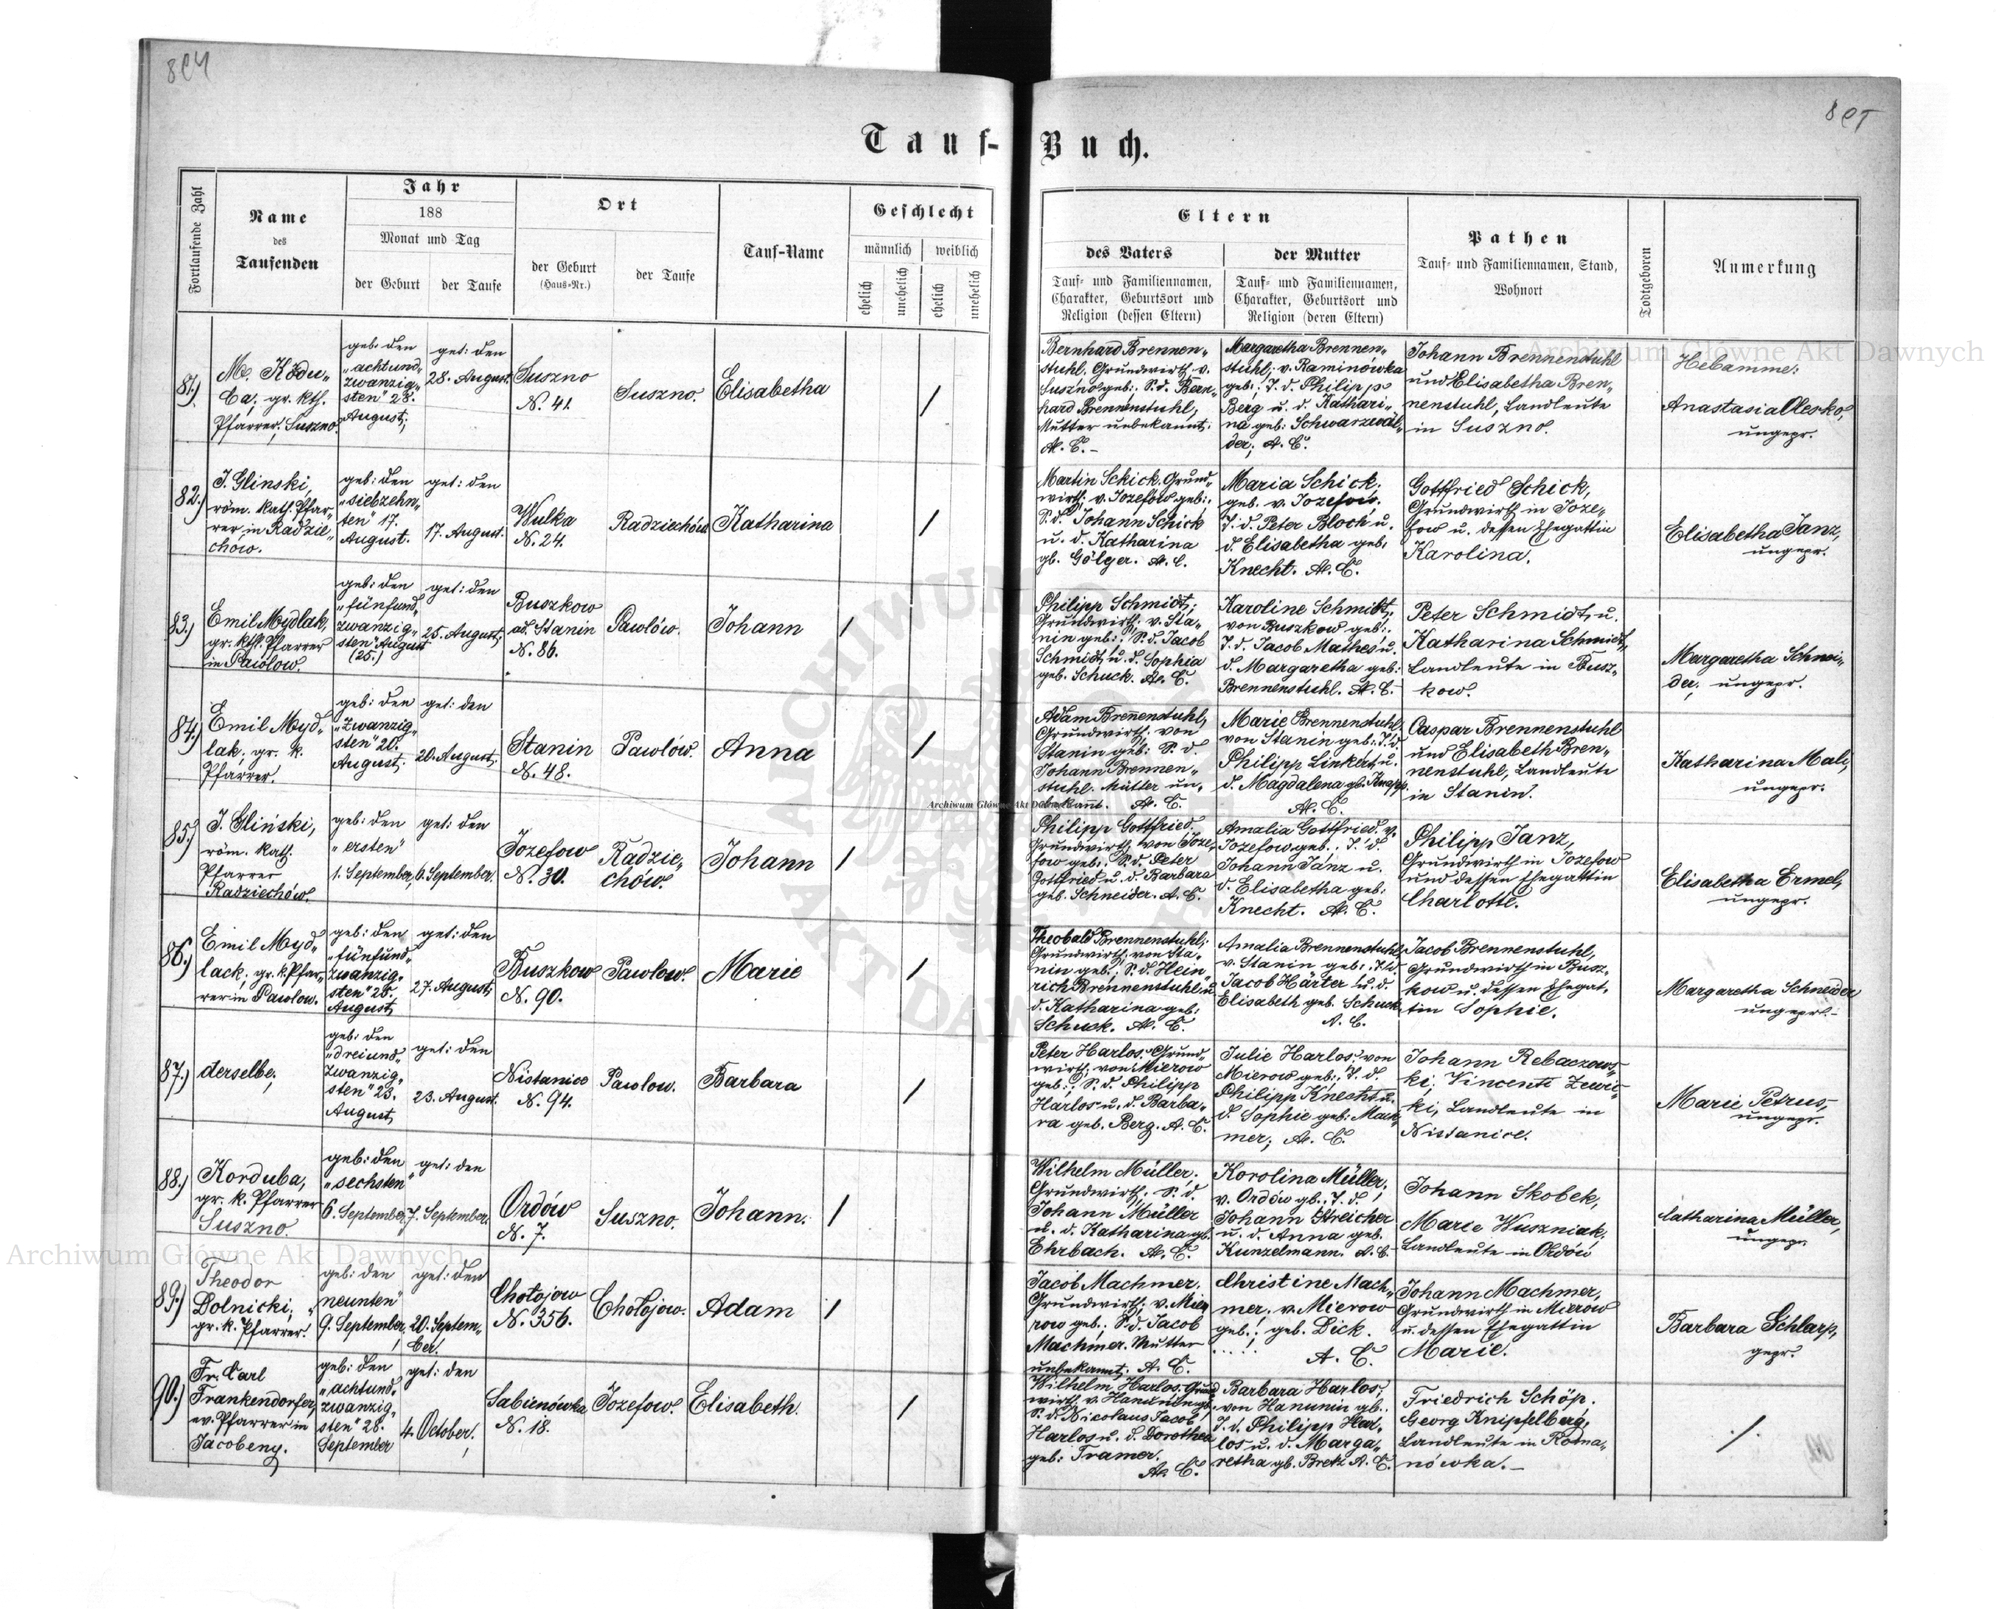 804
805
Tauf-Buch.
Fortlaufende Zahl
Name
des
Taufenden
Jahr
188
Monat und Tag
der Geburt
der Taufe
Ort
der Geburt
(Haus-Nr.)
der Taufe
Tauf-Name
Geschlecht
männlich
weiblich
ehelich
unehelich
ehelich
unehelich
Eltern
des Vaters
Tauf- und Familiennamen,
Charakter, Geburtsort und
Religion (dessen Eltern)
der Mutter
Tauf- und Familiennamen,
Charakter, Geburtsort und
Religion (deren Eltern)
Pathen
Tauf- und Familiennamen, Stand,
Wohnort
Todtgeboren
Anmerkung
81.)
gr. kth.
Pfarrer, Suszno.
geb. den
"achtund"
zwanzig"
sten" 28.
August;
get: den
28. August.
Suszno
N. 41.
Suszno.
Elisabetha
/
Bernhard Brennen"
stuhl. Grundwirth v.
Suszno geb: S. d. Bern"
hard Brennenstuhl,
Mutter unbekannt.
A. C. -
Margaretha Brennen"
stuhl; v. Kaminówka
geb:, T. d. Philipp
Berg u. d. Kathari"
na geb: Schwarzwäl"
der; A. C.
Johann Brennenstuhl
und Elisabetha Bren"
nenstuhl, Landleute
in Suszno.
Hebamme:
Anastasia Olesko,
ungepr.
82.)
J. Glinski,
röm. kath. Pfar"
rer in Radzie"
chów.
geb: den
"siebzehn"
ten" 17.
August.
get: den
17. August.
Wulka
N. 24.
Radziechów.
Katharina
/
Martin Schick. Grund"
wirth v. Jozefow geb:,
S. d. Johann Schick
u. d. Katharina
gb. Gölger. A. C.
Maria Schick.
geb. v. Jozefow.
T. d. Peter Bloch u.
d. Elisabetha geb:
Knecht. A. C.
Gottfried Schick,
Grundwirth in Joze"
fow u. dessen Ehegattin
Karolina.
Elisabetha Janz,
ungepr.
83.)
Emil Mydlak,
gr. kth. Pfarrer
in Pawlow.
geb: den
"fünfund"
zwanzig"
sten" August
(25.)
get: den
25. August;
Buszkow
ad. Stanin
N. 86.
Pawlów.
Johann
/
Philipp Schmidt;
Grundwirth v. Sta"
nin geb:, S. d. Jacob
Schmidt u. d. Sophia
geb. Schuck. A. C.
Karoline Schmidt,
von Buszkow geb:
T. d. Jacob Mathes u.
d. Margaretha geb:
Brennenstuhl. A. C.
Peter Schmidt, u.
Katharina Schmidt,
Landleute in Busz"
kow.
Margaretha Schnei"
der, ungepr.
84.)
Emil Myd"
lak; gr. k.
Pfarrer.
geb: den
"zwanzig"
sten" 20.
August;
get: den
20. August;
Stanin
N. 48.
Pawlów.
Anna
/
Adam Brennenstuhl,
Grundwirth von
Stanin geb: S. d.
Johann Brennen"
stuhl. Mutter un"
bekant. A. C.
Marie Brennenstuhl
von Stanin geb: T. d.
Philipp Linkert u.
d. Magdalena gb. Knapp.
A. C.
Caspar Brennenstuhl
und Elisabeth Bren"
nenstuhl, Landleute
in Stanin.
Katharina Mali,
ungepr.
85.)
J. Gliński,
röm. kath.
Pfarrer
Radziechów.
geb: den
"ersten"
1. September,
get: den
6. September.
Jozefow
N. 30.
Radzie"
chów.
Johann
/
Philipp Gottfried,
Grundwirth, von Joze"
fow geb: S. d. Peter
Gottfried u. d. Barbara
geb. Schneider. A. C.
Amalia Gottfried. v.
Jozefow geb:, T. d.
Johann Janz u.
d. Elisabetha geb:
Knecht. A. C.
Philipp Janz,
Grundwirth in Jozefow
und dessen Ehegattin
Charlotte.
Elisabetha Ermel,
ungepr.
86.)
Emil Myd"
lack; gr. k. Pfar"
rer in Pawlow.
geb: den
"fünfund"
zwanzig"
sten" 25.
August
get: den
27. August;
Buszkow
N. 90.
Pawlow.
Marie
/
Theobald Brennenstuhl;
Grundwirth von Sta"
nin geb:, S. d. Hein"
rich Brennenstuhl u.
d. Katharina geb:
Schuck. A. C.
Amalia Brennenstuhl,
v. Stanin geb:, T. d.
Jacob Härter u. d.
Elisabeth geb. Schuck
A. C.
Jacob Brennenstuhl,
Grundwirth in Busz"
kow u. dessen Ehegat"
tin Sophie.
Margaretha Schneider
ungepr.
87.)
derselbe;
geb: den
"dreiund"
zwanzig"
sten" 23.
August
get: den
23. August.
Nistanice
N. 94.
Pawlow.
Barbara
/
Peter Harlos. Grund"
wirth, von Mierow
geb:, S. d. Philipp
Harlos u. d. Barba"
ra geb. Berg. A. C.
Julie Harlos, von
Mierow geb:, T. d.
Philipp Knecht u.
d. Sophie geb: Mach"
mer; A. C.
Johann Rebaczows"
ki, Vincenti
ki, Landleute in
Nistanice.
Marie Petrus,
ungepr.
88.)
Korduba,
gr. k. Pfarrer
Suszno.
geb: den
"sechsten"
6. September,
get: den
7. September.
Ordów
N. 7.
Suszno.
Johann.
/
Wilhelm Müller.
Grundwirth; S. d.
Johann Müller
u. d. Katharina gb.
Ehrbach. A. C.
Korolina Müller,
v. Ordów gb:, T. d.
Johann Streicher
u. d. Anna geb.
Kunzelmann. A. C.
Johann Skobek,
Marie Wuszniak,
Landleute in Ordów
Catharina Müller,
ungepr.
89.)
Theodor
Dolnicki,
gr. k. Pfarrer.
geb: den
"neunten"
9. September,
get: den
20. Septem"
ber.
Chołojow
N. 356.
Chołojow.
Adam
/
Jacob Machmer.
Grundwirth; v. Mie"
row geb:, S. d. Jacob
Machmer. Mutter
unbekannt. A. C.
Christine Mach"
mer, v. Mierow
geb:, geb. Dick.
A. C.
Johann Machmer,
Grundwirth in Mierow
u. dessen Ehegattin
Marie.
Barbara Schlarp,
gepr.
90.)
Fr. Carl
Frankendorfer,
ev. Pfarrer in
Jacobeny.
geb: den
"achtund"
zwanzig"
sten" 28.
September
get: den
4. October.
Sabinówka
N. 18.
Jozefow.
Elisabeth.
/
Wilhelm Harlos. Grund
wirth, v. Hanunin gb.
S. d. Nicolaus Jacob
Harlos u. d. Dorothea
geb: Framer.
A. C.
Barbara Harlos;
von Hanunin gb:
T. d. Philipp Har"
los u. d. Marga"
retha gb. Bretz A. C.
Friedrich Schöp.
Georg Knipfelberg,
Landleute in Roma"
nówka. -
./.
Archiwum Główne Akt Dawnych
Archiwum Główne Akt Dawnych
Archiwum Główne Akt Dawnych